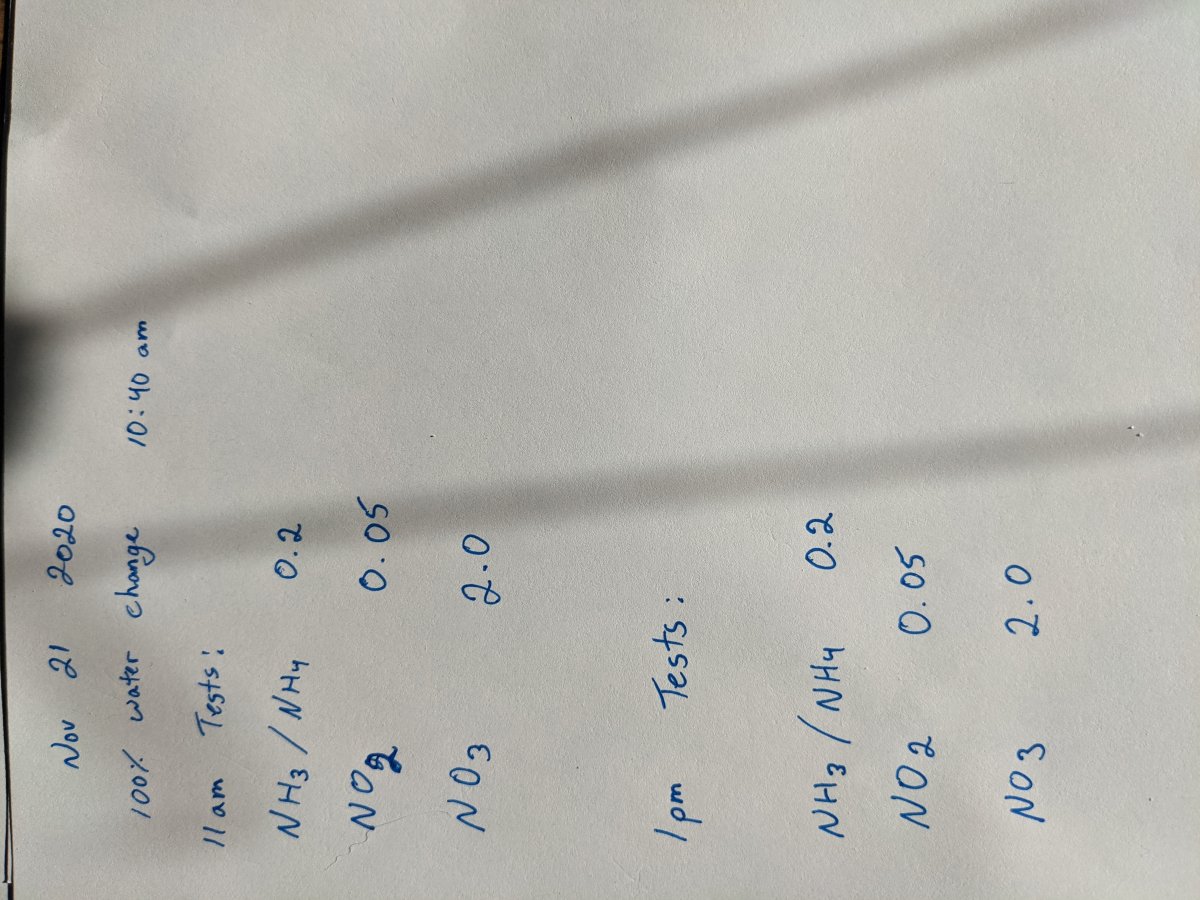 Nov 21 2020
100% water change 10:40 am
11am Tests:
NH3/NH4 0.2
NO2 0.05
NO3 2.0
1pm Tests:
NH3/NH4 0.2
NO2 0.05
NO3 2.0